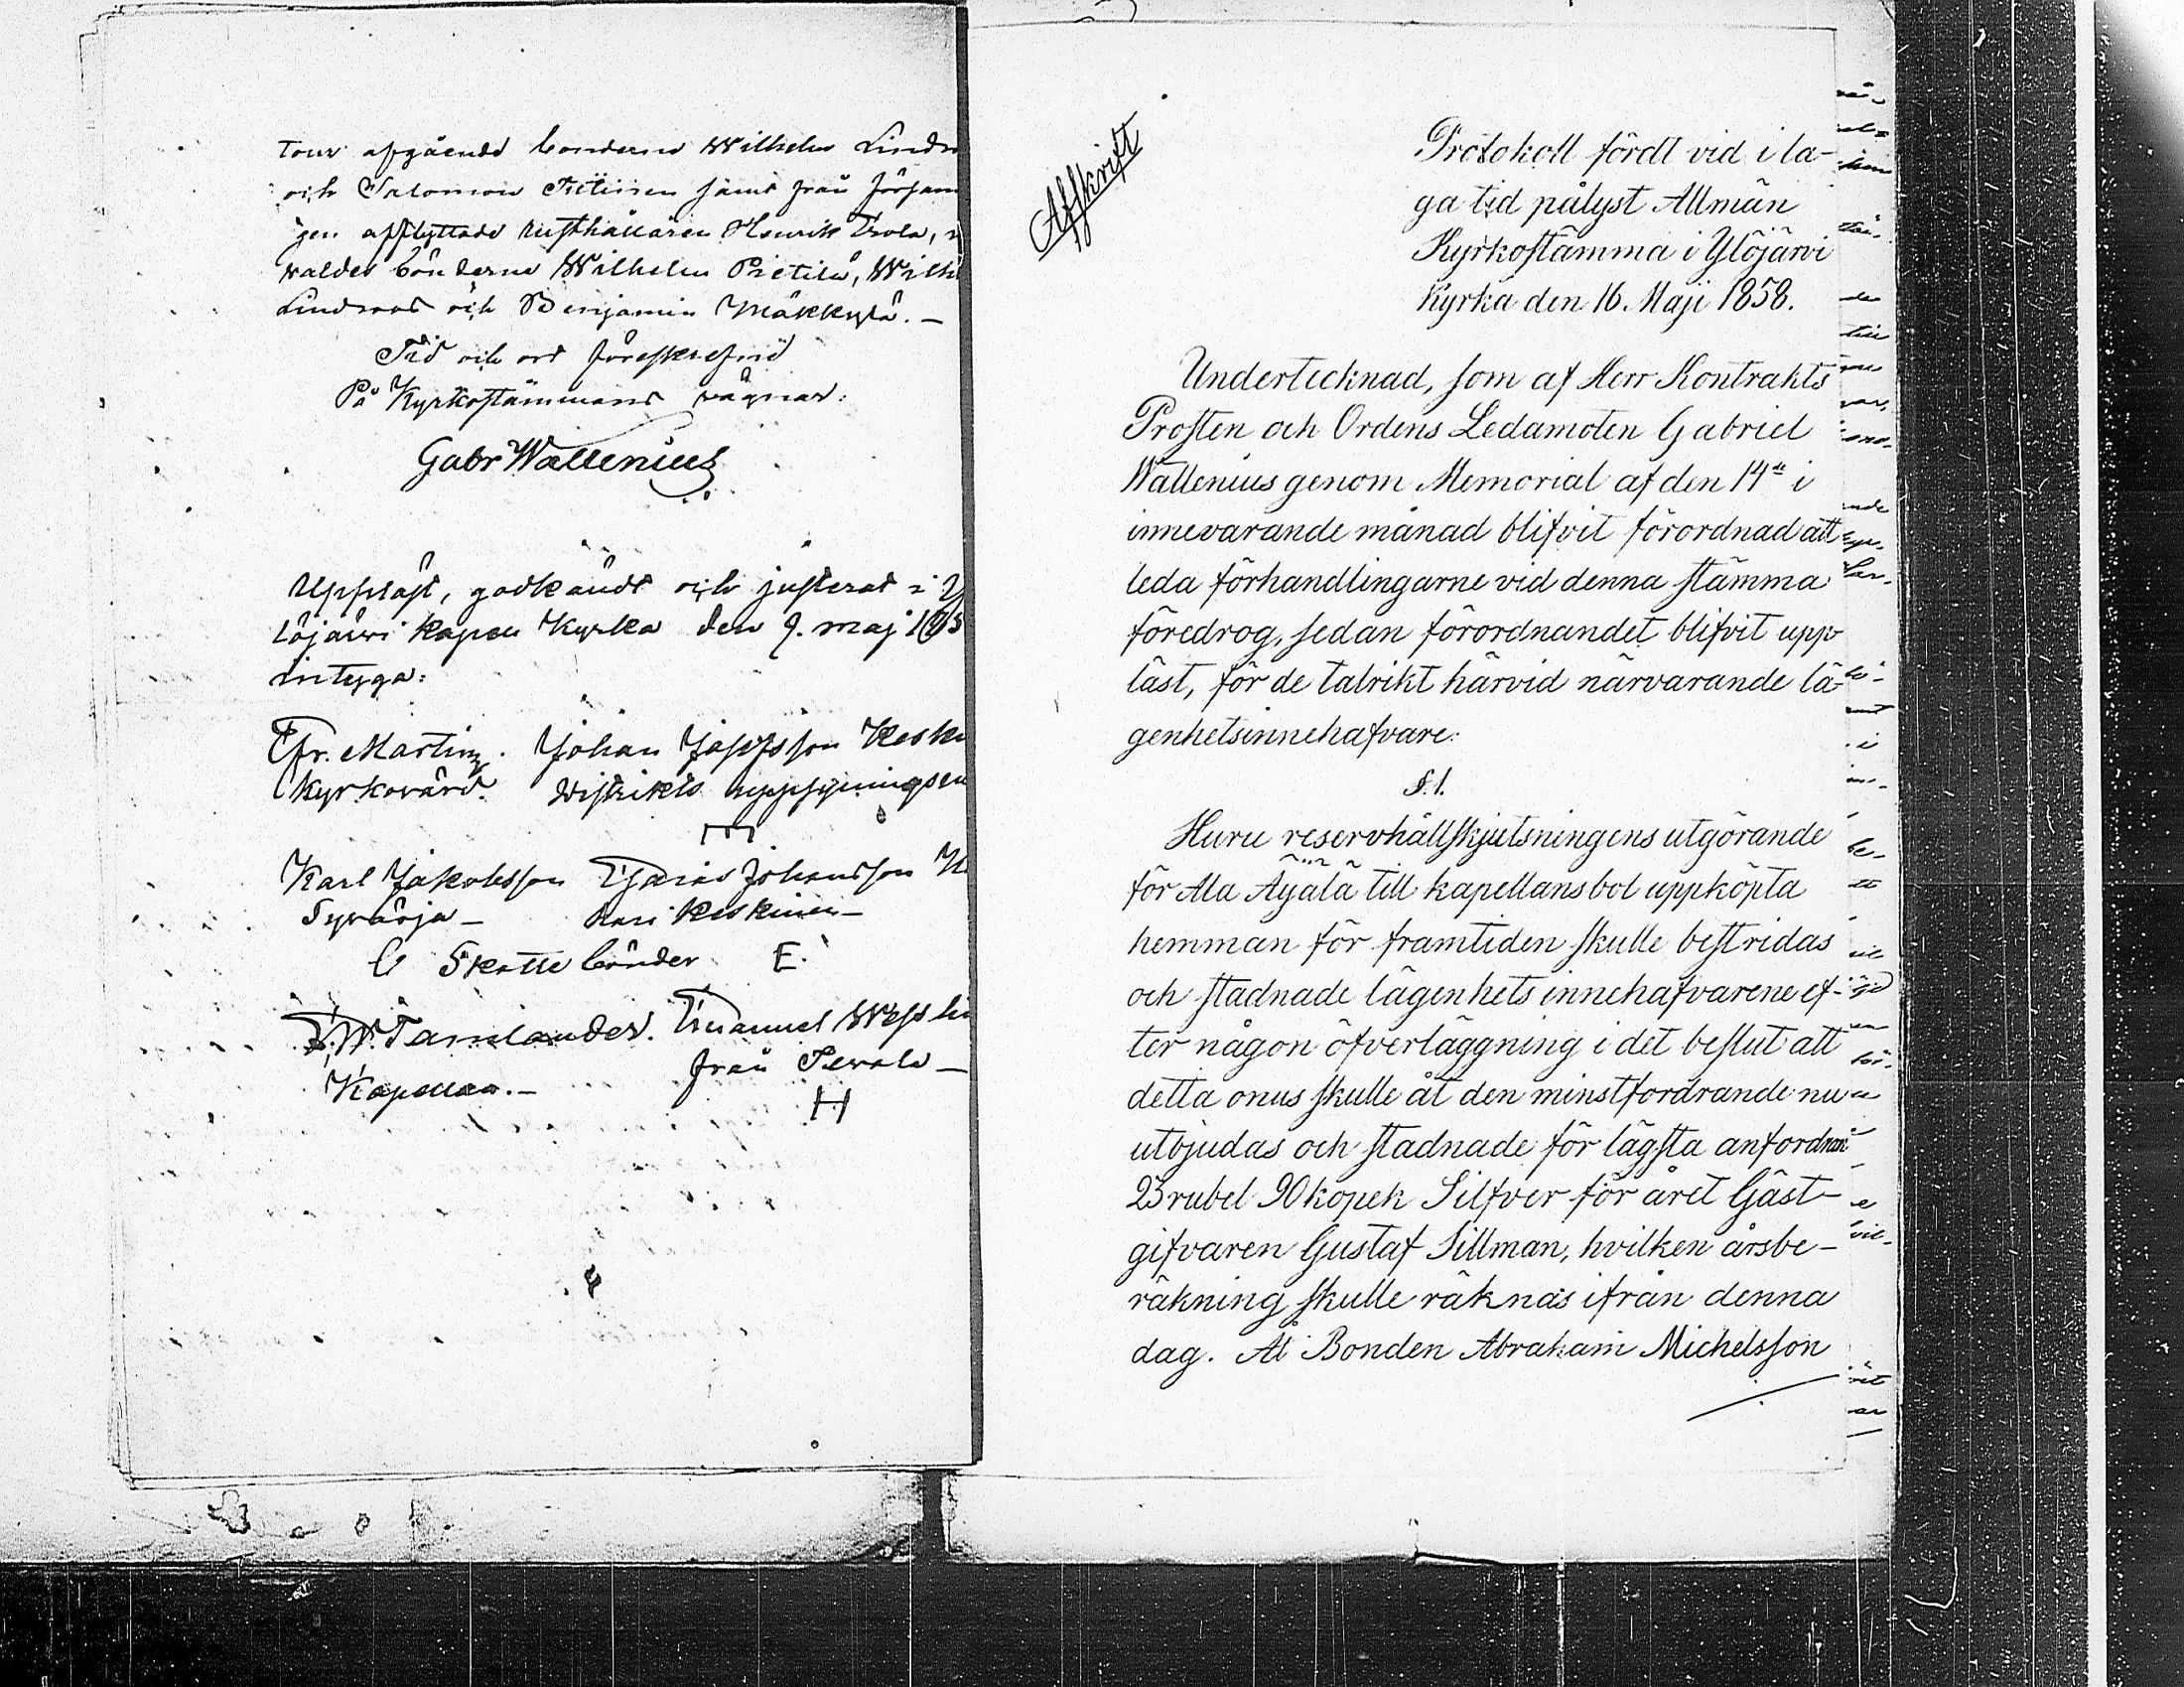 tour afgående bönderne Wilhelm Lindr
och Salomon Tiitinen samt från försam
gen afflyttade rusthållaren Henrik Irola,
valdes bönderne Wilhelm Pietilä, Wilh
Lindroos och Benjamin Mäkkylä. –
Tid och ort föreskrefne
På Kyrkostämmans vägnar:
Gabr Wallenius
Uppläst, godkändt och justerat i Y
löjärvi kapell Kyrka den 9. maj 185
intyga:
Efr. Martin. Johan Josefsson Keski
Kyrkovärd. Distrikts uppsyningsm
Karl Jakobsson Esaias Johansson
Pyrärjä – Keskinen –
Skatte bönder E.
F.W. Tamlander. Emanuel Wess
Kapellan. – från Pervola –
H
Afskrift
Protokoll fördt vid i la-
ga tid pålyst Allmän
Kyrkostämma i Ylöjärvi
Kyrka den 16. Maji 1858.
Undertecknad, som af Herr Kontrakts
Prosten och Ordens Ledamoten Gabriel
Wallenius genom Memorial af den 14de i
innevarande månad blifvit förordnad att
leda förhandlingarne vid denna stämma
föredrog, sedan förordnandet blifvit upp
läst, för de talrikt härvid närvarande lä-
genhetsinnehafvare:
§.1.
Huru reservhållskjutsningens utgörande
för Ala Äyälä till kapellansbol uppköpta
hemman för framtiden skulle bestridas
och stadnade lägenhets innehafvarene ef-
ter någon öfverläggning i det beslut att
detta onus skulle åt den minstfordrande nu
utbjudas och stadnade för lägsta anfordran
23 rubel 90 kopek Silfver för året Gäst-
gifvaren Gustaf Sillman, hvilken årsbe-
räkning skulle räknas ifrån denna
dag. At Bonden Abraham Michelsson